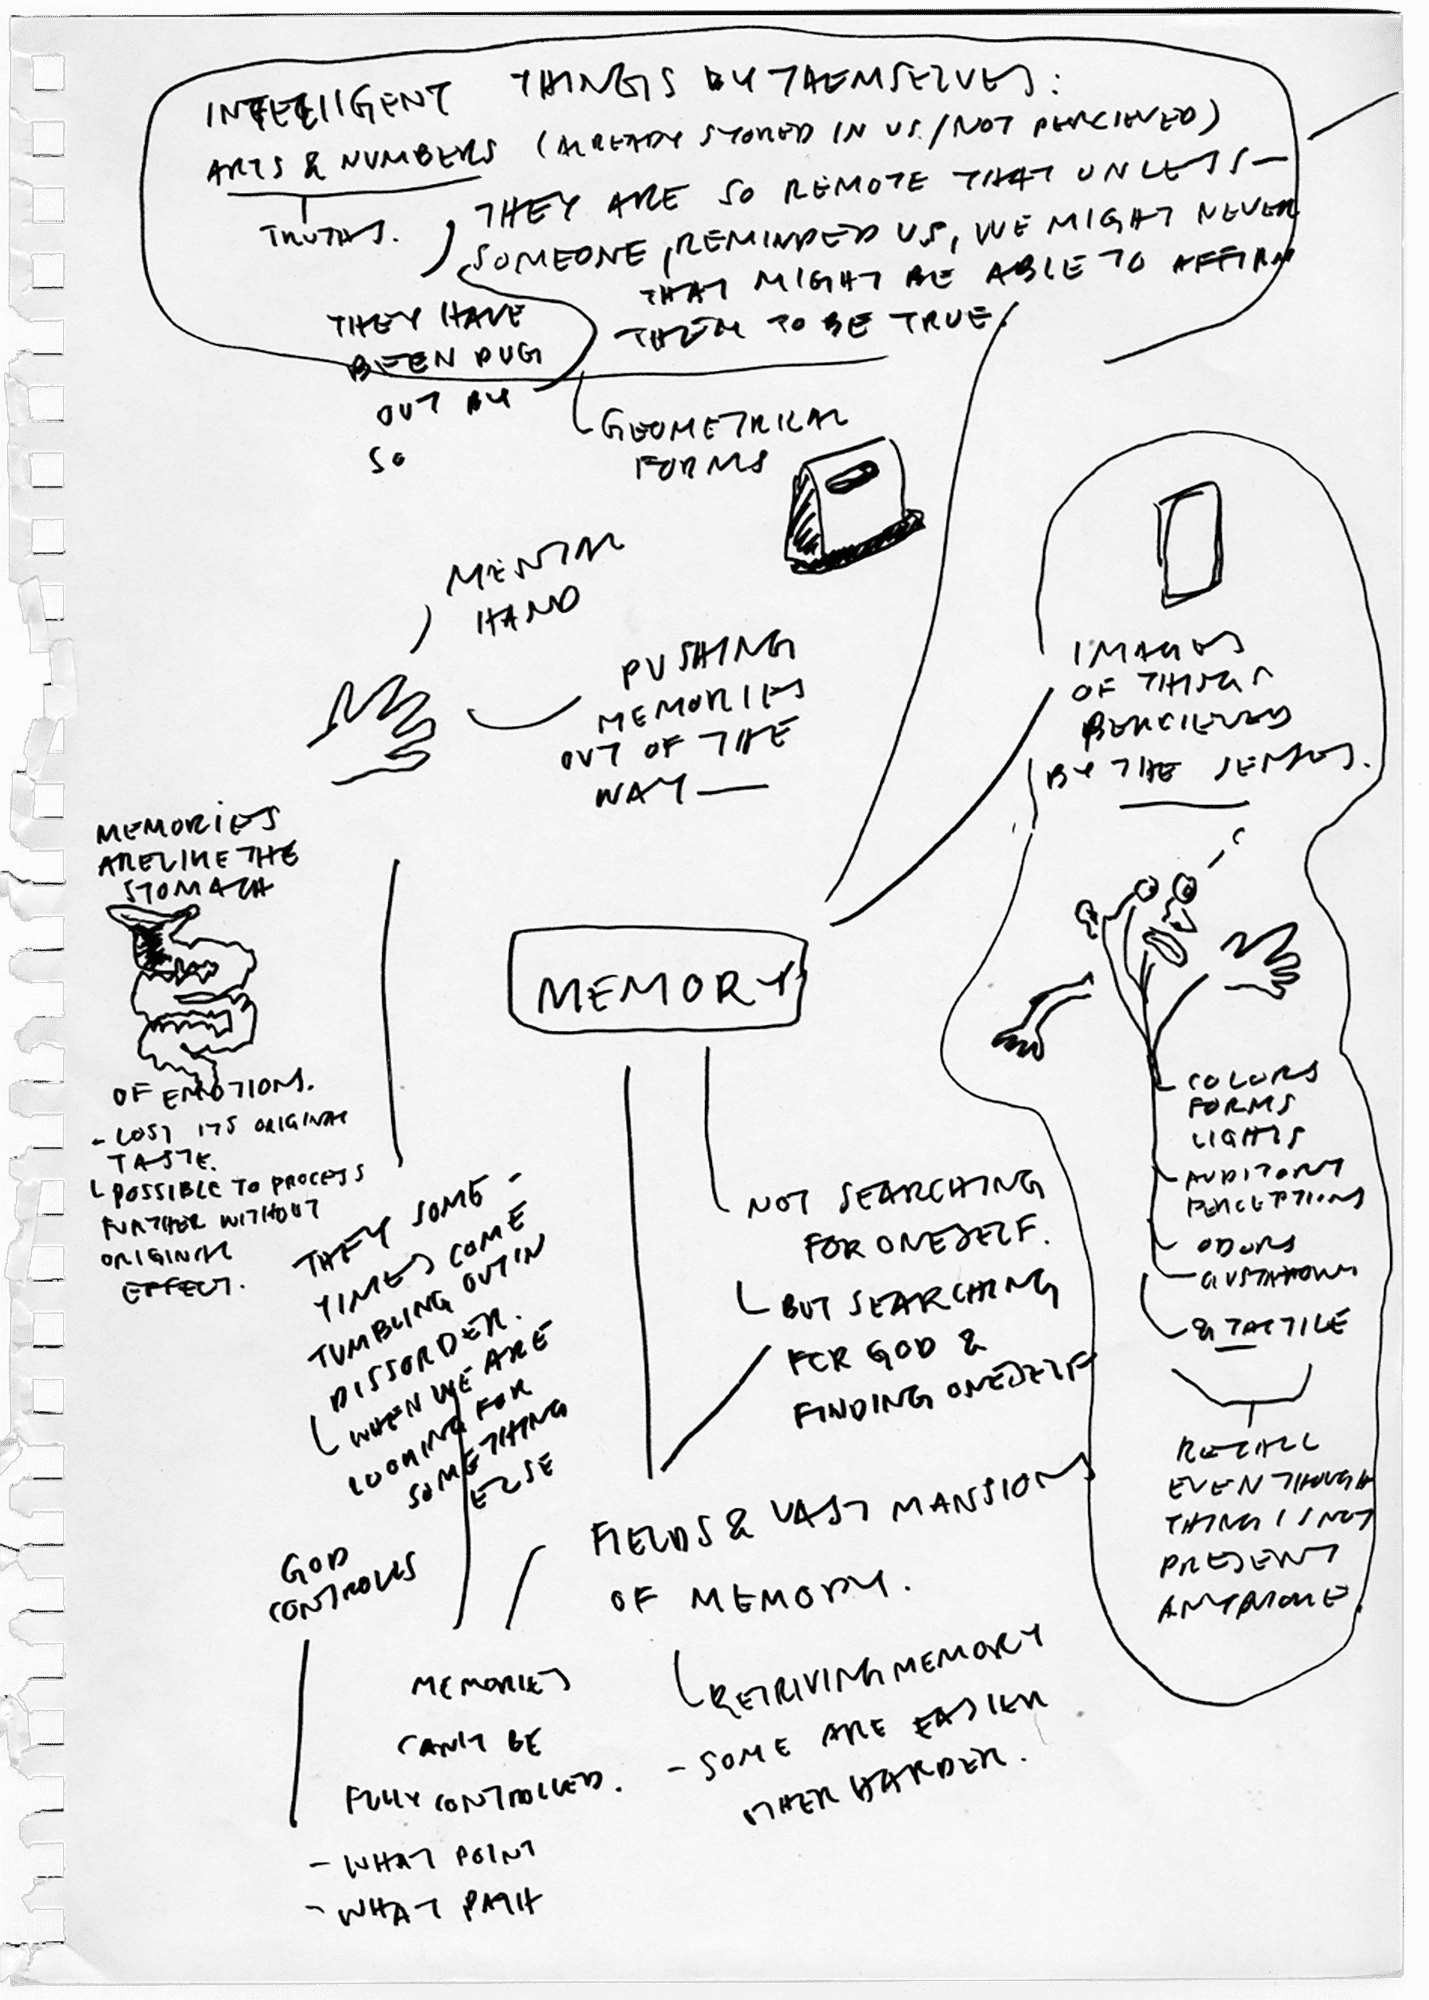 INTELLIGENT THINGS BY THEMSELVES:
ARTS & NUMBERS (ALREADY STORED IN US/NOT PERCIEVED)
TRUTHS.
THEY ARE SO REMOTE THAT UNLESS—
SOMEONE, REMINDED US, WE MIGHT NEVER
THAT MIGHT BE ABLE TO AFFIRM
THEM TO BE TRUE.
THEY HAVE
BEEN DUG
OUT BY
SO
GEOMETRICAL
FORMS
MENTAL
HAND
PUSHING
MEMORIES
OUT OF THE
WAY—
IMAGES
OF THINGS
PERCIEVED
BY THE SENSES.
MEMORIES
ARE LIKE THE
STOMACH
OF EMOTIONS.
- LOST ITS ORIGINAL
TASTE.
POSSIBLE TO PROCESS
FURTHER WITHOUT
ORIGINAL
EFFECT.
MEMORY
COLORS
FORMS
LIGHTS
AUDITORY
PERCEPTIONS
ODORS
& TACTILE
RECALL
EVEN THOUGH
THING IS NOT
PRESENT
ANYMORE.
THEY SOME-
TIMES COME
TUMBLING OUT IN
DISSORDER.
WHEN WE ARE
LOOKING FOR
SOMETHING
ELSE
NOT SEARCHING
FOR ONESELF.
BUT SEARCHING
FOR GOD &
FINDING ONESELF
FIELDS & VAST MANSIONS
OF MEMORY.
RETRIVING MEMORY
- SOME ARE EASIER
OTHER HARDER.
GOD
CONTROLS
MEMORIES
CAN'T BE
FULLY CONTROLLED.
- WHAT POINT
- WHAT PATH